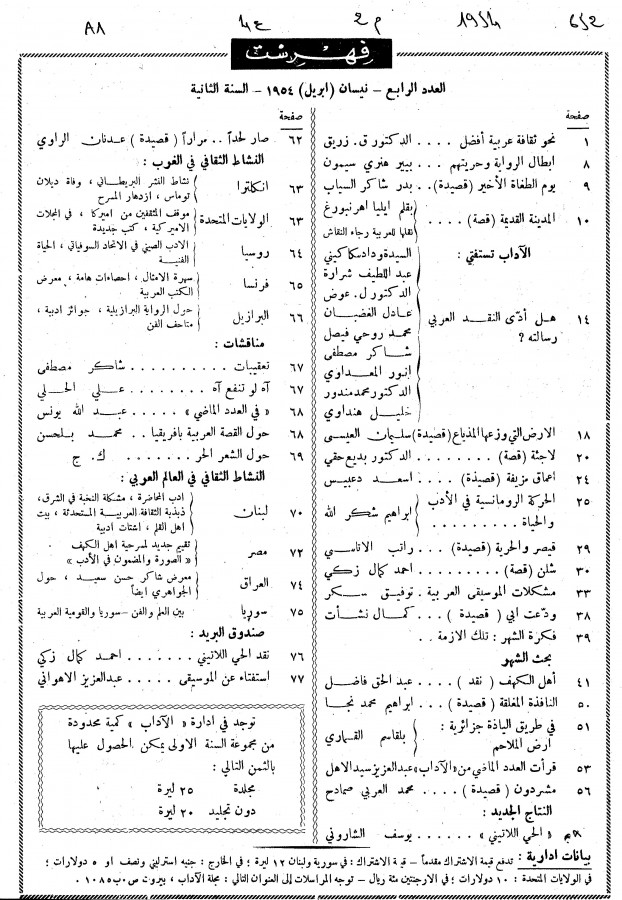 A8
٤ع
٢م
19/4
6/2
فهرست
العدد الرابع - نيسان (ابريل) ١٩٥٤ - السنة الثانية
صفحة
١ نحو ثقافة عربية أفضل .... الدكتور ق. زريق
٨ ابطال الرواية وحريتهم ... بيير هنري سيمون
٩ يوم الطغاة الأخير (قصيدة).. بدر شاكر السياب
١٠ المدينة القديمة (قصة) .... بقلم ايليا اهرنبورغ
نقلها للعربية رجاء النقاش
الآداب تستفتي :
١٤ هل أدّى النقد العربي
رسالته ؟
السيدة وداد سكاكيني
عبد اللطيف شرارة
الدكتور ل. عوض
عادل الغضبان
محمد روحي فيصل
شاكر مصطفى
انور المعداوي
الدكتور محمد مندور
خليل هنداوي
١٨ الارض التي وزعها المذياع (قصيدة) سليمان العيسى
٢٠ لاجئة (قصة) ........ الدكتور بديع حقي
٢٤ اعماق مزيفة (قصيدة) ... اسعد دعبيس
٢٥ الحركة الرومانسية في الأدب
والحياة ........
ابراهيم شكر الله
٢٩ قيصر والحرية (قصيدة) ... راتب الاتاسي
٣٠ شلن (قصة) ........ احمد كمال زكي
٣٣ مشكلات الموسيقى العربية . توفيق سكر
٣٨ ودّعت ابي ( قصيدة ) ... كمال نشأت
٣٩ فكرة الشهر : تلك الازمة ..
بحث الشهر
٤١ أهل الكهف ( نقد ) .... عبد الحق فاضل
٥٠ النافذة المغلقة ( قصيدة ) ... ابراهيم محمد نجا
٥١ في طريق الياذة جزائرية :
ارض الملاحم
بلقاسم القماري
٥٣ قرأت العدد الماضي من «الآداب» عبدالعزيز سيد الاهل
٥٦ مشردون ( قصيدة ) ... محمد العربي صمادح
النتاج الجديد :
«الحي اللاتيني» ....... يوسف الشاروني
صفحة
٦٢ صار لحداً .. مراراً ( قصيدة ) عدنان الراوي
النشاط الثقافي في الغرب :
٦٣ انكلترا
نشاط النشر البريطاني ، وفاة ديلان
توماس ، ازدهار المسرح
٦٣ الولايات المتحدة
موقف المثقفين من اميركا ، في المجلات
الاميركية ، كتب جديدة
٦٤ روسيا
الادب الصيني في الاتحاد السوفياتي ، الحياة
الفنية
٦٥ فرنسا
سهرة الامثال ، احصاءات هامة ، معرض
الكتب العربية
٦٦ البرازيل
حول الرواية البرازيلية ، جوائز ادبية ،
متاحف الفن
مناقشات :
٦٧ تعقيبات .......... شاكر مصطفى
٦٧ آه لو تنفع آه ...... علي الحلي
٦٨ « في العدد الماضي » ..... عبد الله يونس
٦٨ حول القصة العربية بافريقيا .. محمد بلحسن
٦٩ حول الشعر الحر ...... ك. ج
النشاط الثقافي في العالم العربي :
٧٠ لبنان
ادب المحاضرة ، مشكلة النخبة في الشرق،
ذبذبة الثقافة العربية المستحدثة ، بيت
اهل القلم ، اشتات ادبية
٧٢ مصر
تقييم جديد لمسرحية اهل الكهف
« الصورة والمضمون في الأدب »
٧٤ العراق
معرض شاكر حسن سعيد ، حول
الجواهري ايضاً
٧٥ سوريا بين العلم والفن - سوريا والقومية العربية
صندوق البريد :
٧٦ نقد الحي اللاتيني ....... احمد كمال زكي
٧٧ استفتاء عن الموسيقى .... عبدالعزيز الاهواني
توجد في ادارة « الآداب » كمية محدودة
من مجموعة السنة الاولى يمكن الحصول عليها
بالثمن التالي :
مجلدة ٢٥ ليرة
دون تجليد ٢٠ ليرة
بيانات ادارية : تدفع قيمة الاشتراك مقدماً - قيمة الاشتراك : في سورية ولبنان ١٢ ليرة ؛ في الخارج : جنيه استرليني ونصف او ٥ دولارات ؛
في الولايات المتحدة : ١٠ دولارات ؛ في الارجنتين مئة ريال - توجه المراسلات إلى العنوان التالي : مجلة الآداب ، بيروت ص.ب ١٠٨٥